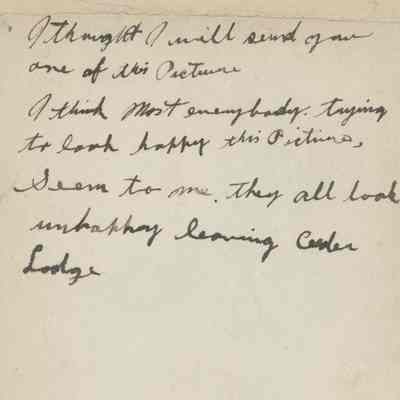 I thought I will send you
one of this Picture
I think Most everybody. trying
to look happy this Picture,
Seem to me, they all look
unhappy leaving Ceder
Lodge